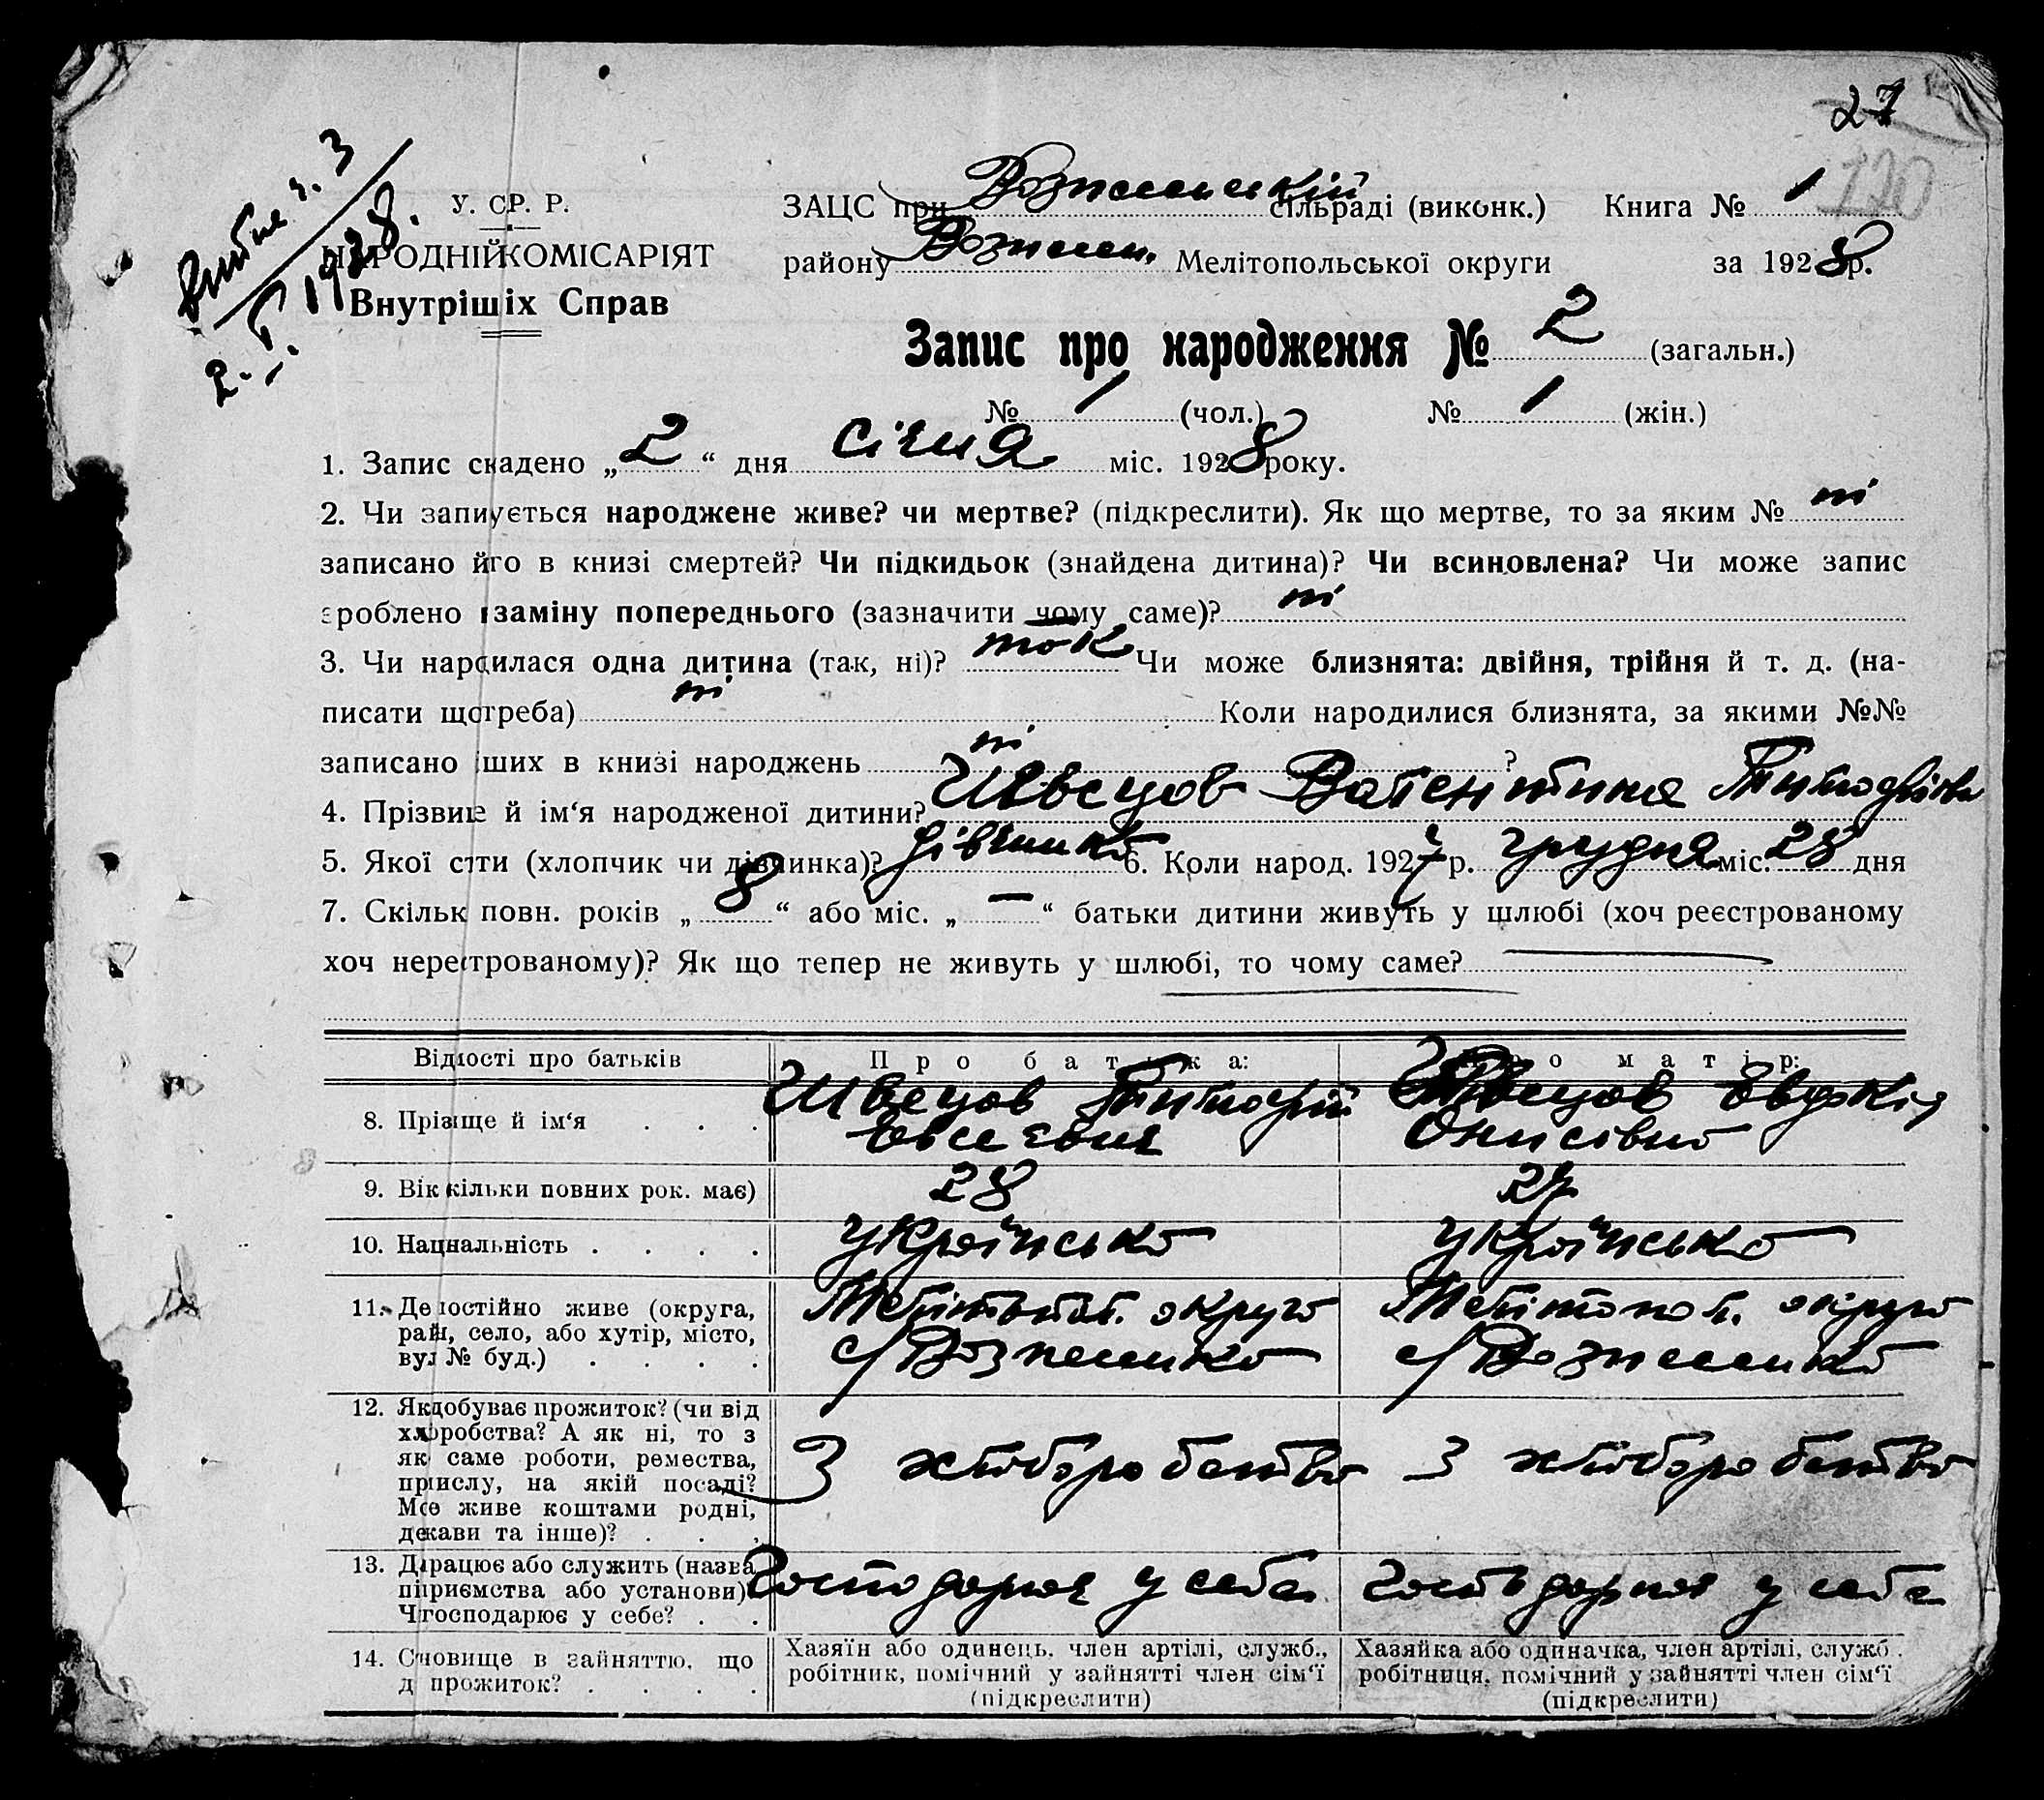 27
120
2. I. 1928.
У. СР. Р.
НАРОДНІЙ КОМІСАРІЯТ
Внутрішіх Справ
ЗАЦС при Вознесенській сільраді (виконк.) Книга № 1
району Вознесен. Мелітопольської округи за 1928 р.
Запис про народження № 2 (загальн.)
№ 1 (чол.) № 1 (жін.)
1. Запис скадено „2“ дня січня міс. 1928 року.
2. Чи запиується народжене живе? чи мертве? (підкреслити). Як що мертве, то за яким № ні
записано йго в книзі смертей? Чи підкидьок (знайдена дитина)? Чи всиновлена? Чи може запис
зроблено взаміну попереднього (зазначити чому саме)? ні
3. Чи нардилася одна дитина (так, ні)? так Чи може близнята: двійня, трійня й т. д. (на-
писати що треба) ні Коли народилися близнята, за якими №№
записано інших в книзі народжень ні ?
4. Прізвище й ім‘я народженої дитини? Швецов Валентина Тимофієвна
5. Якої стати (хлопчик чи дівчинка)? дівчинка 6. Коли народ. 1927 р. грудня міс. 28 дня
7. Скільк повн. років „8“ або міс. „—“ батьки дитини живуть у шлюбі (хоч реєстрованому
хоч нереєстрованому)? Як що тепер не живуть у шлюбі, то чому саме?
Відмості про батьків Про батька: Про матір:
8. Прізвище й ім‘я . . . Швецов Тимофій Швецов Евдокія
Евсеевич Онисівна
9. Вік (кільки повних рок. має) 28 27
10. Національність . . . . українська українська
11. Де постійно живе (округа, Мелітопол. округа Мелітопол. округа
район, село, або хутір, місто,
вул. № буд.) . . . . с/Вознесенка с/Вознесенка
12. Як добуває прожиток? (чи від
хліборобства? А як ні, то з
якої саме роботи, ремества,
промислу, на якій посаді? З хліборобства З хліборобства
Може живе коштами родні,
держави та інше)? . . .
13. Де працює або служить (назва
підприємства або установи)? Господарює у себе Господарює у себе
Чи господарює у себе? . .
14. Становище в зайняттю, що Хазяїн або одинець, член артілі, служб., Хазяйка або одиначка, член артілі, служб.,
дає прожиток? . . . . робітник, помічний у зайнятті член сім‘ї робітниця, помічний у зайнятті член сім‘ї
(підкреслити) (підкреслити)